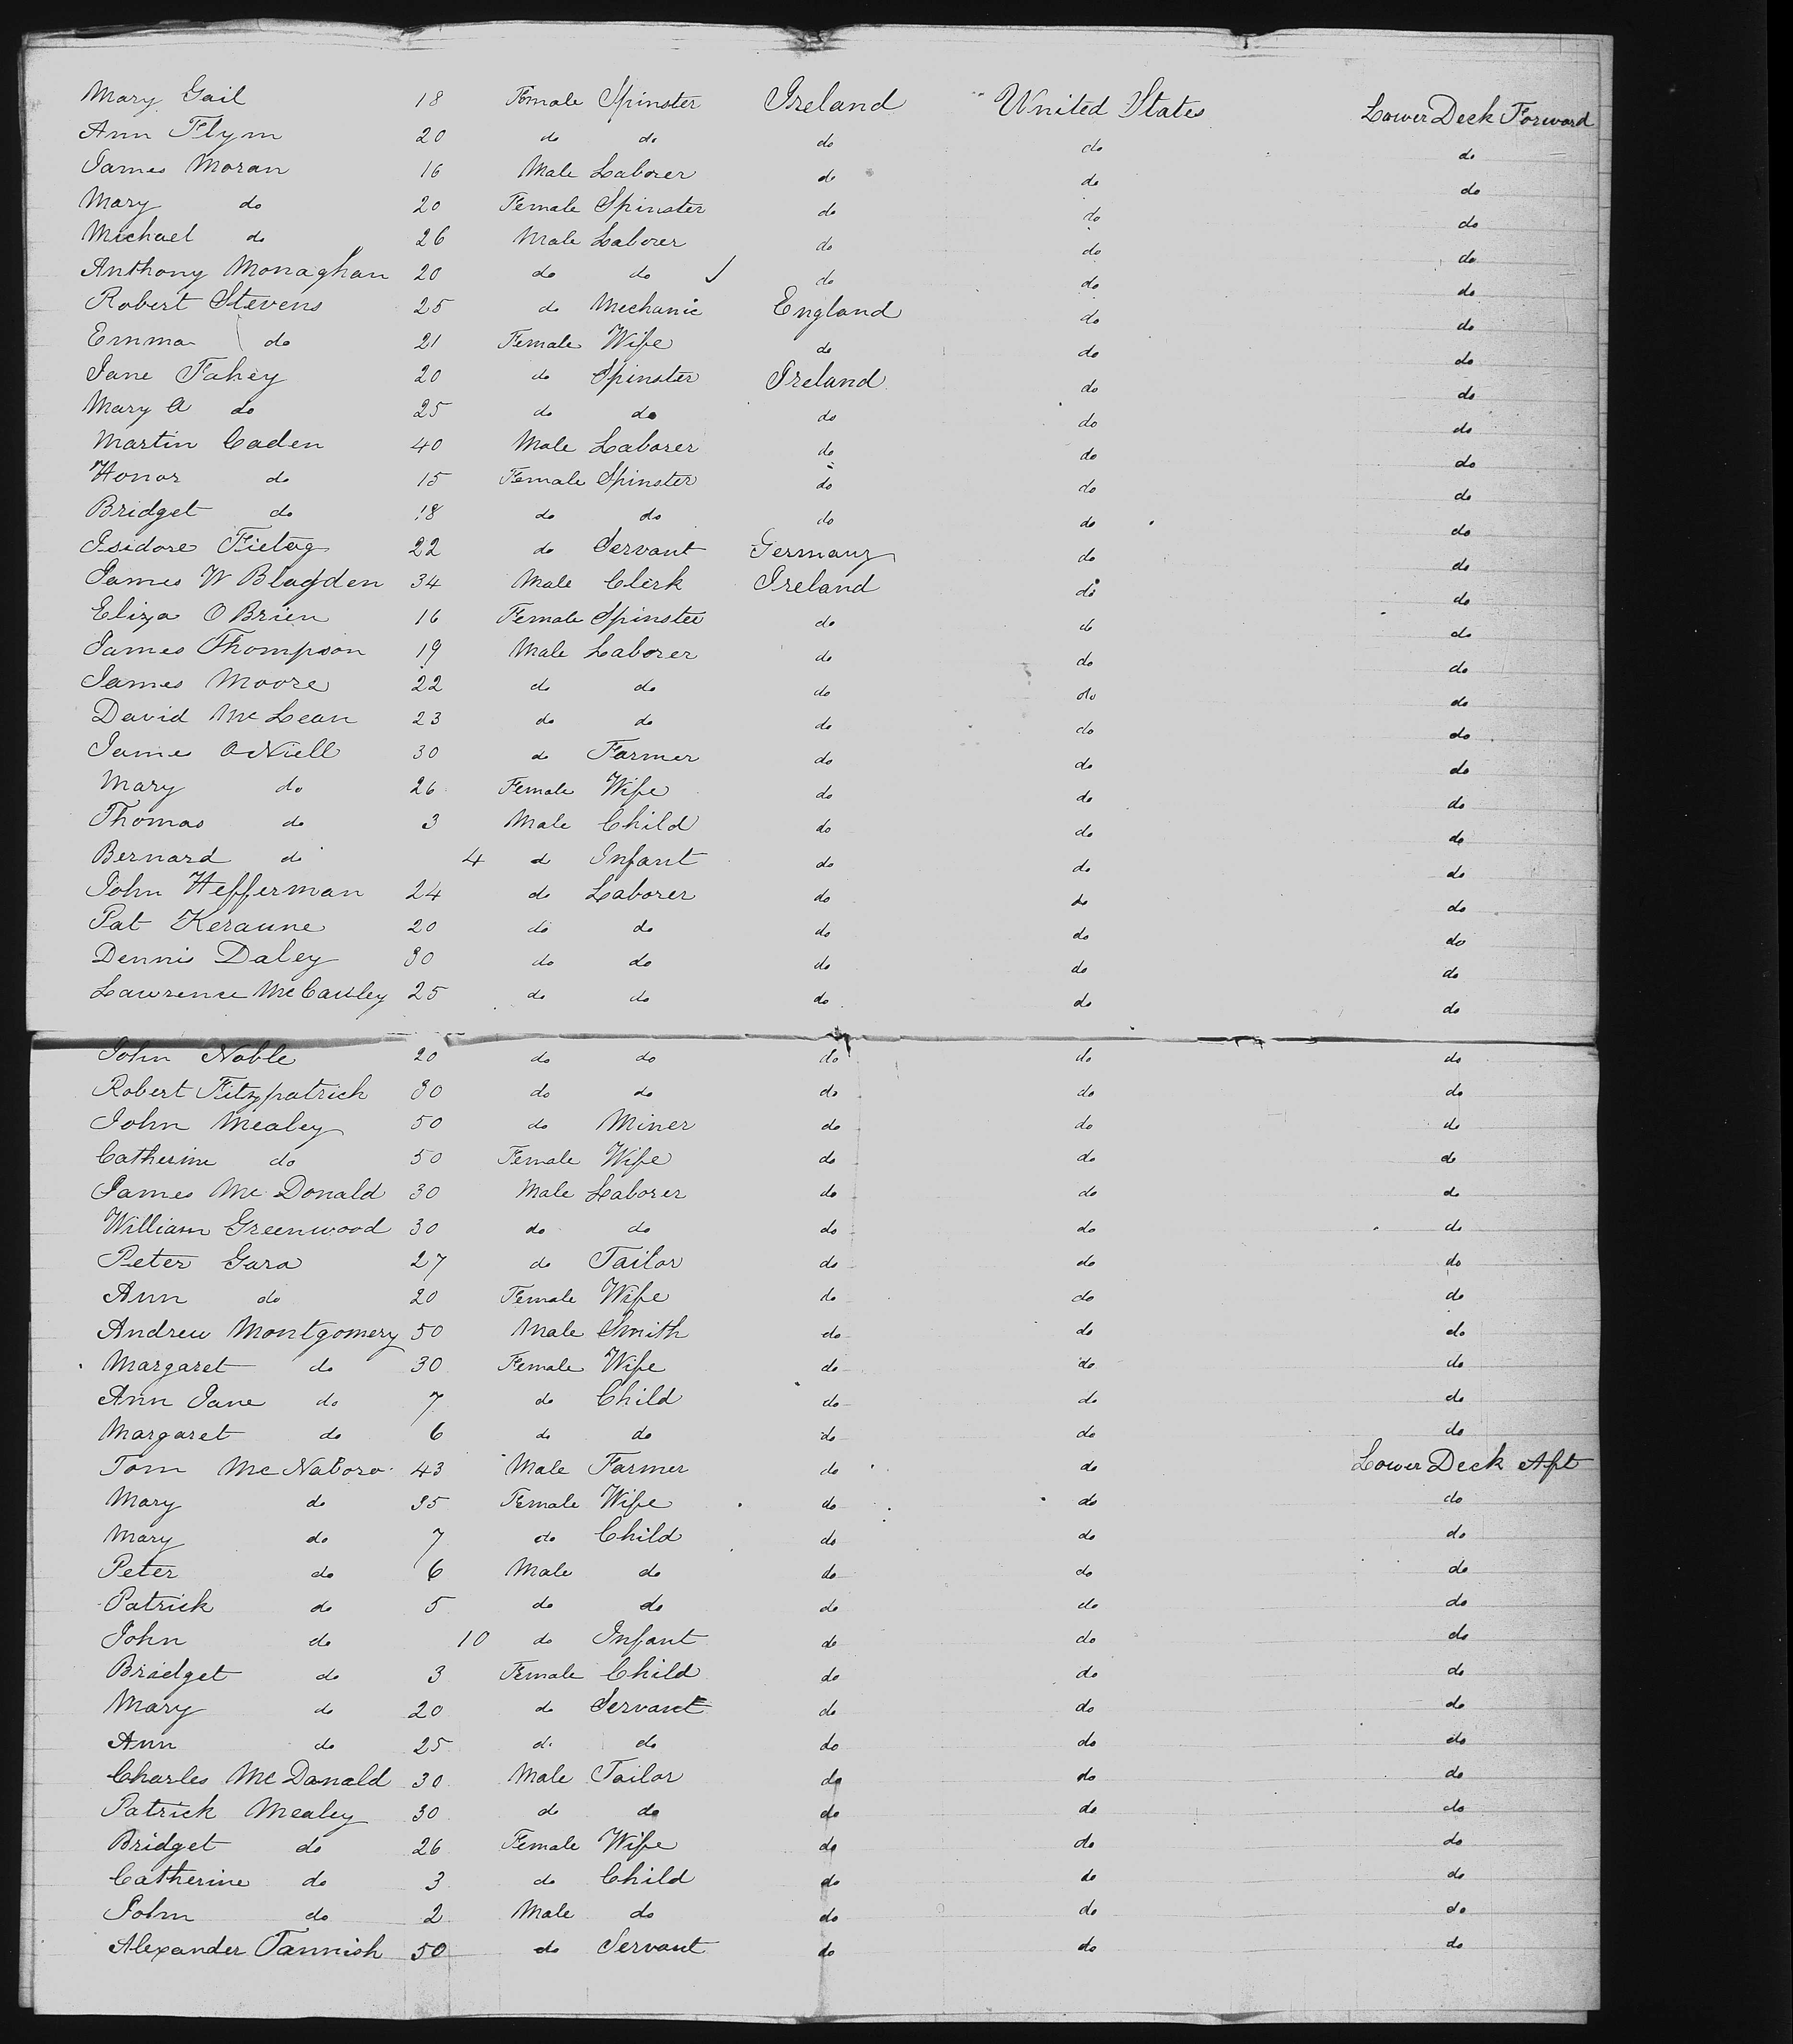 Mary Gail 18 Female Spinster Ireland United States Lower Deck Forward
Ann Flynn 20 do do do do do
James Moran 16 Male Laborer do do do
Mary do 20 Female Spinster do do do
Michael do 26 Male Laborer do do do
Anthony Monaghan 20 do do do do do
Robert Stevens 25 do Mechanic England do do
Emma do 21 Female Wife do do do
Jane Fahey 20 do Spinster Ireland do do
Mary A do 25 do do do do do
Martin Caden 40 Male Laborer do do do
Honor do 15 Female Spinster do do do
Bridget do 18 do do do do do
Isidore 22 do Servant Germany do do
James W Blagden 34 Male Clerk Ireland do do
Eliza O Brien 16 Female Spinster do do do
James Thompson 19 Male Laborer do do do
James Moore 22 do do do do do
David McLean 23 do do do do do
James ONiell 30 do Farmer do do do
Mary do 26 Female Wife do do do
Thomas do 3 Male Child do do do
Bernard do 4 do Infant do do do
John Hefferman 24 do Laborer do do do
Pat Keraune 20 do do do do do
Dennis Daley 30 do do do do do
Lawrence 25 do do do do do
John Noble 20 do do do do do
Robert Fitzpatrick 30 do do do do do
John Mealey 50 do Miner do do do
Catherine do 50 Female Wife do do do
James McDonald 30 Male Laborer do do do
William Greenwood 30 do do do do do
Peter Gara 27 do Tailor do do do
Ann do 20 Female Wife do do do
Andrew Montgomery 50 Male Smith do do do
Margaret do 30 Female Wife do do do
Ann Jane do 7 do Child do do do
Margaret do 6 do do do do do
Tom 43 Male Farmer do do Lower Deck Aft
Mary do 35 Female Wife do do do
Mary do 7 do Child do do do
Peter do 6 Male do do do do
Patrick do 5 do do do do do
John do 10 do Infant do do do
Bridget do 3 Female Child do do do
Mary do 20 do Servant do do do
Ann do 25 do do do do do
Charles McDonald 30 Male Tailor do do do
Patrick Mealey 30 do do do do do
Bridget do 26 Female Wife do do do
Catherine do 3 do Child do do do
John do 2 Male do do do do
Alexander Tannish 50 do Servant do do do